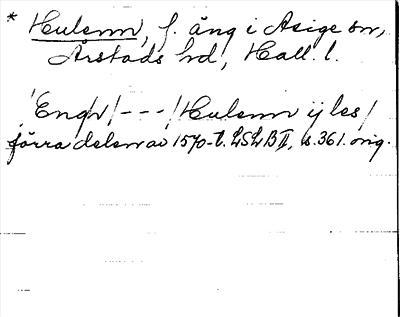 * Hulsnn, f. äng i Asige sn,
Årstads hd, Hall. l.
'Engh/---/Hulsnn ij les/
förra delen av 1570-t. LSLB II, s. 361. orig.